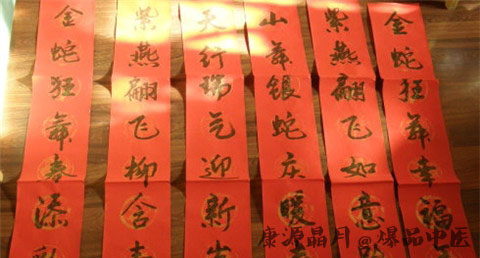 金蛇狂舞幸福
紫燕翩飞如意
山舞银蛇庆暖
天行瑞气迎新
紫燕翩飞柳含
金蛇狂舞春添彩
康源晶月@爆品中医